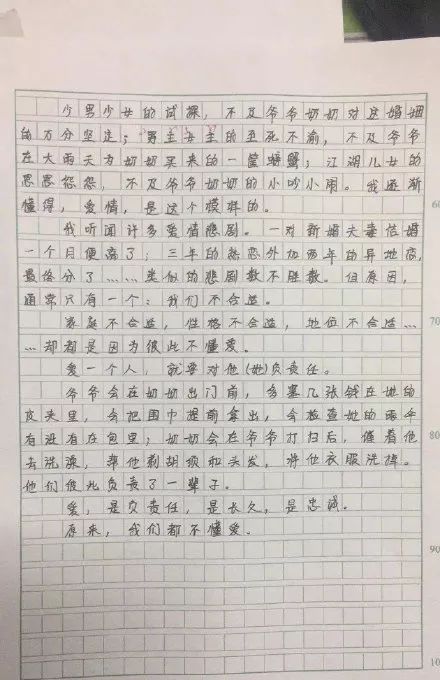 少男少女的试探，不及爷爷奶奶对这婚姻
的万分坚定；男主女主的至死不渝，不及爷爷
在大雨天为奶奶买来的一筐螃蟹；江湖儿女的
恩恩怨怨，不及爷爷奶奶的小吵小闹。我逐渐
懂得，爱情，是这个模样的。
60
我听闻许多爱情悲剧。一对新婚夫妻结婚
一个月便离了；三年的热恋外加两年的异地恋，
最终分了……类似的悲剧数不胜数。但原因，
通常只有一个：我们不合适。
70
家庭不合适，性格不合适，地位不合适…
…却都是因为彼此不懂爱。
爱一个人，就要对他(她)负责任。
爷爷会在奶奶出门前，多塞几张钱在她的
皮夹里，会把围巾提前拿出，会检查她的
有没有在包里；奶奶会在爷爷打扫后，催着他
80
去洗澡，帮他剃胡须和头发，将他衣服洗掉。
他们彼此负责了一辈子。
爱，是负责任，是长久，是忠诚。
原来，我们都不懂爱。
90
10